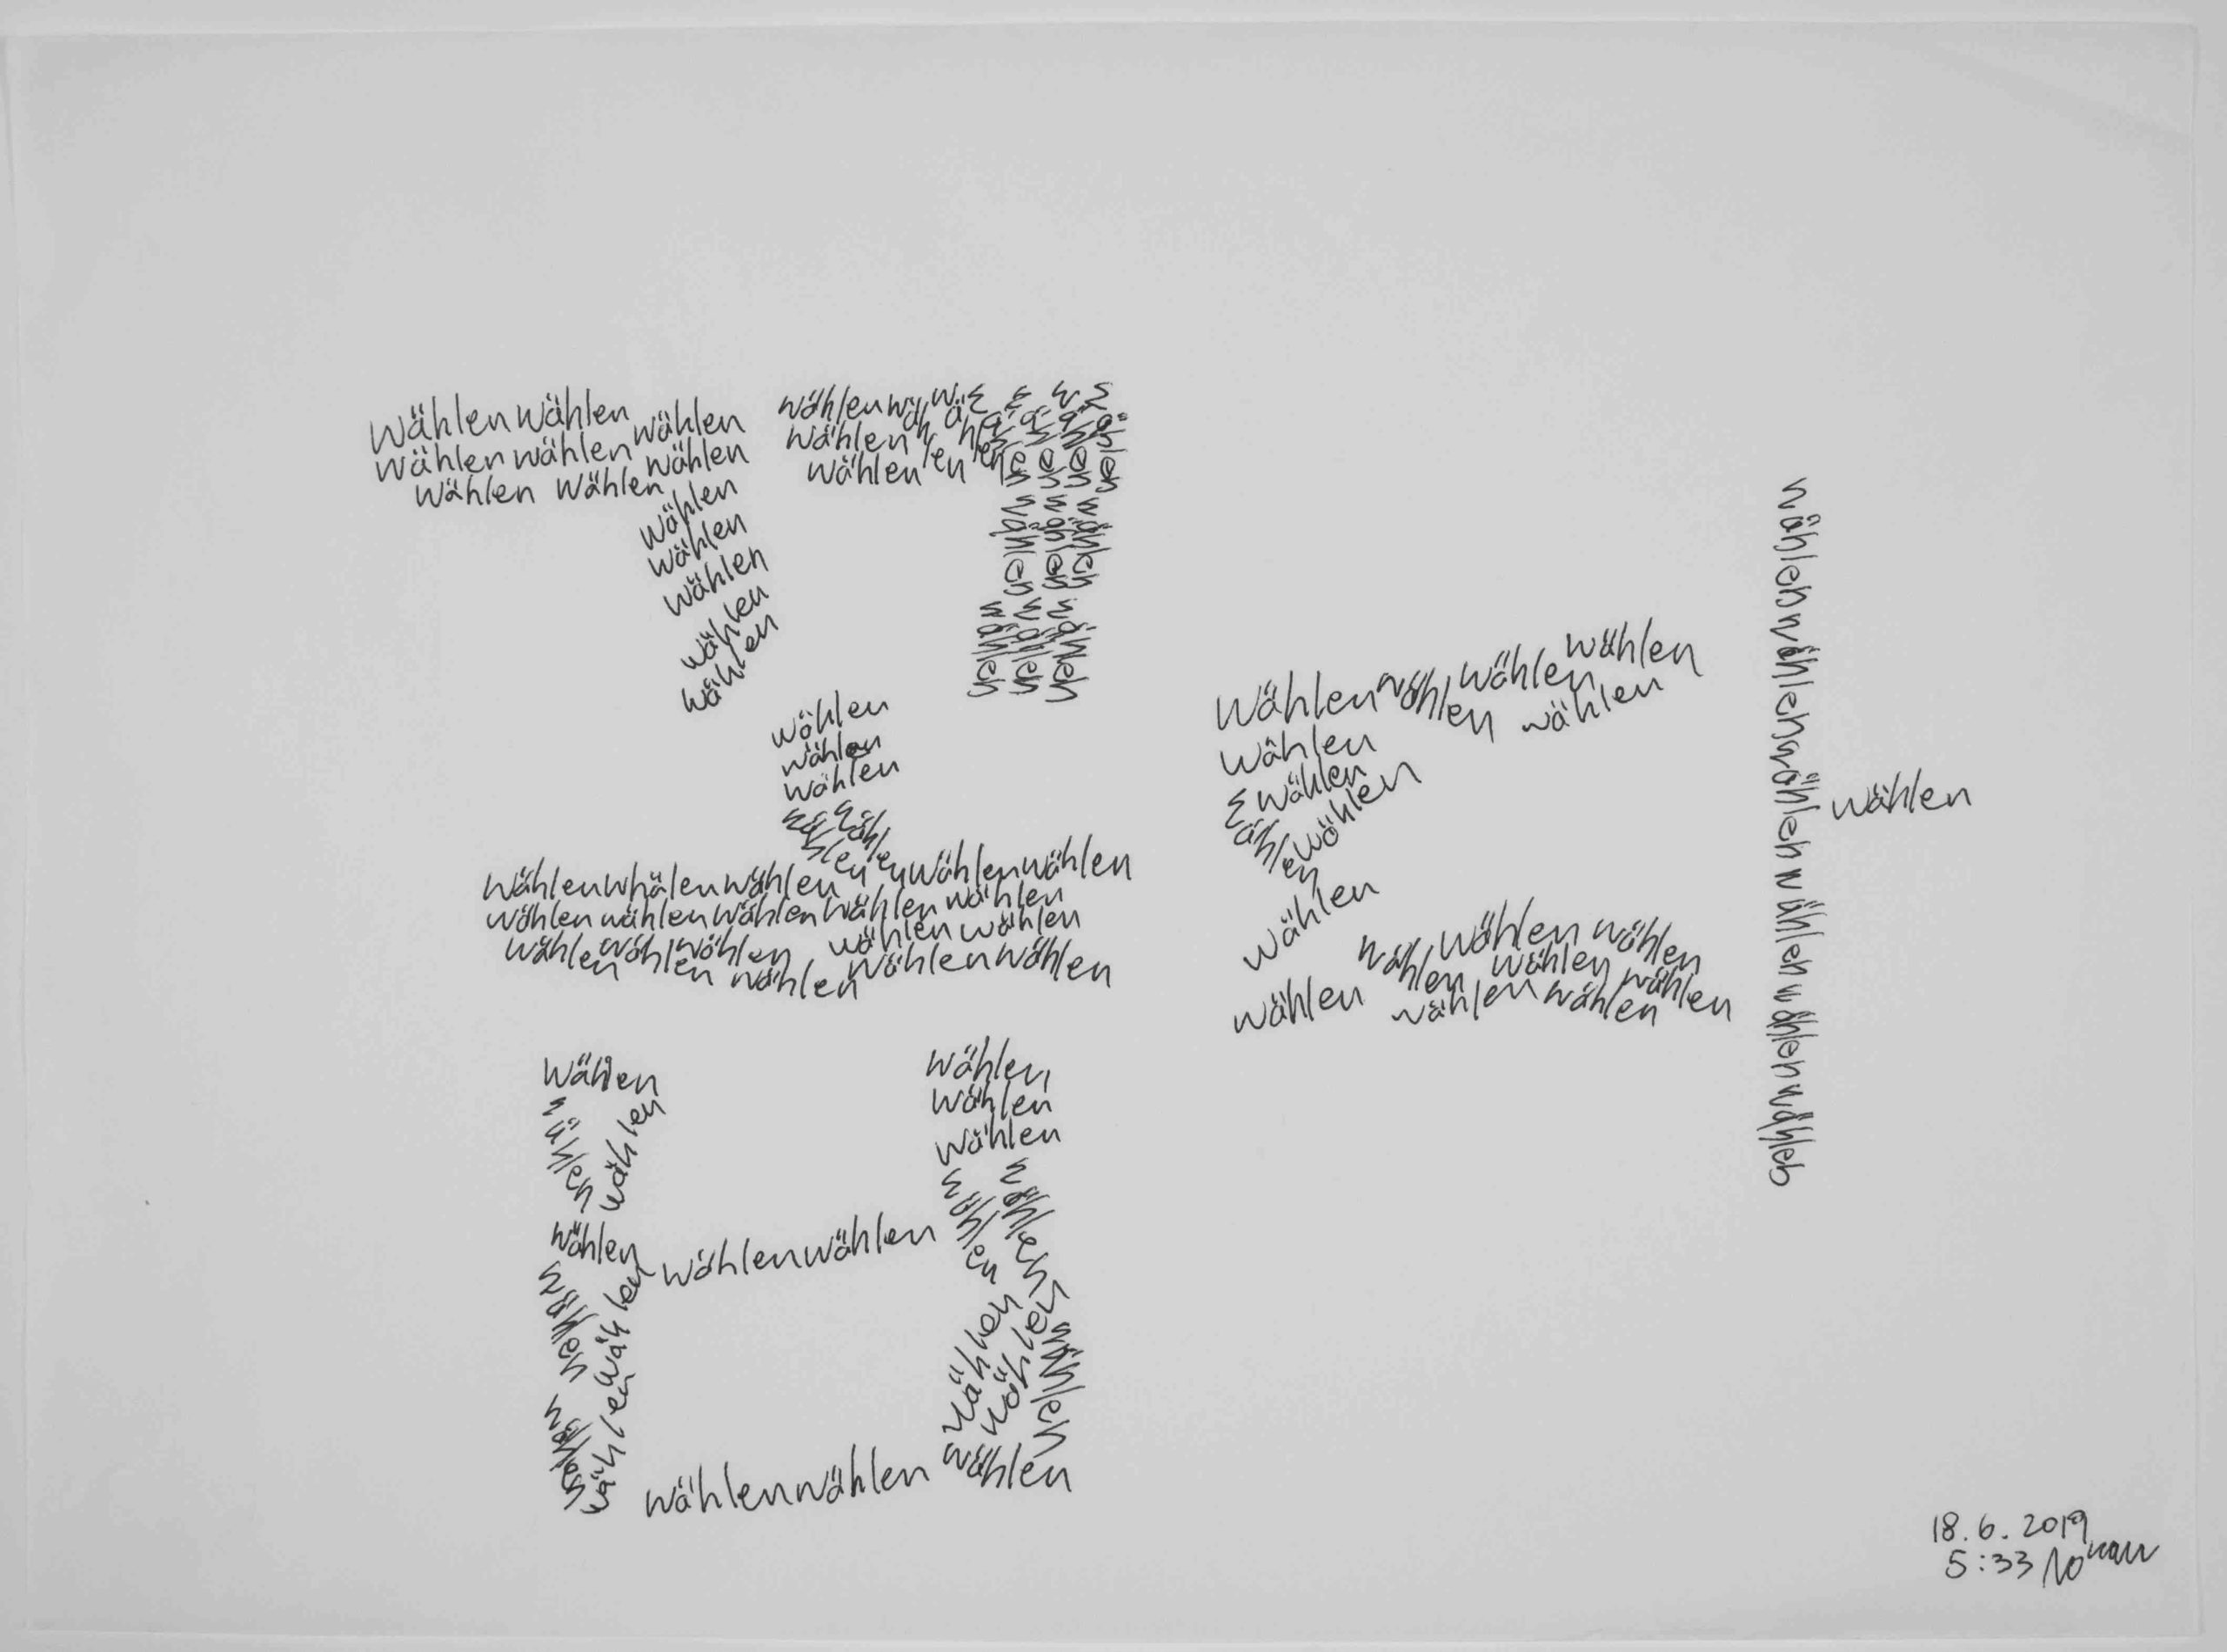 wählen wählen wählen
wählen wählen wählen
wählen wählen
wählen
wählen
wählen
wählen
wählen
wählen wählen wählen wählen wählen wählen
wählen wählen
wählen
wählen wählen wählen
wählen wählen wählen
wählen
wählen
wählen
wählen wählen
wählen whälen wählen wählen wählen
wählen wählen wählen wählen wählen
wählen wählen wählen wählen wählen
wählen wählen wählen
wählen
wählen wählen
wählen
wählen wählen
wählen wählen
wählen wählen
wählen
wählen
wählen
wählen wählen
wählen wählen wählen
wählen wählen wählen
wählen wählen wählen wählen
wählen wählen
wählen
wählen
wählen
wählen
wählen
wählen wählen wählen wählen
wählen wählen wählen
wählen wählen wählen
wählen wählen wählen wählen wählen wählen
wählen
18.6.2019
5:33